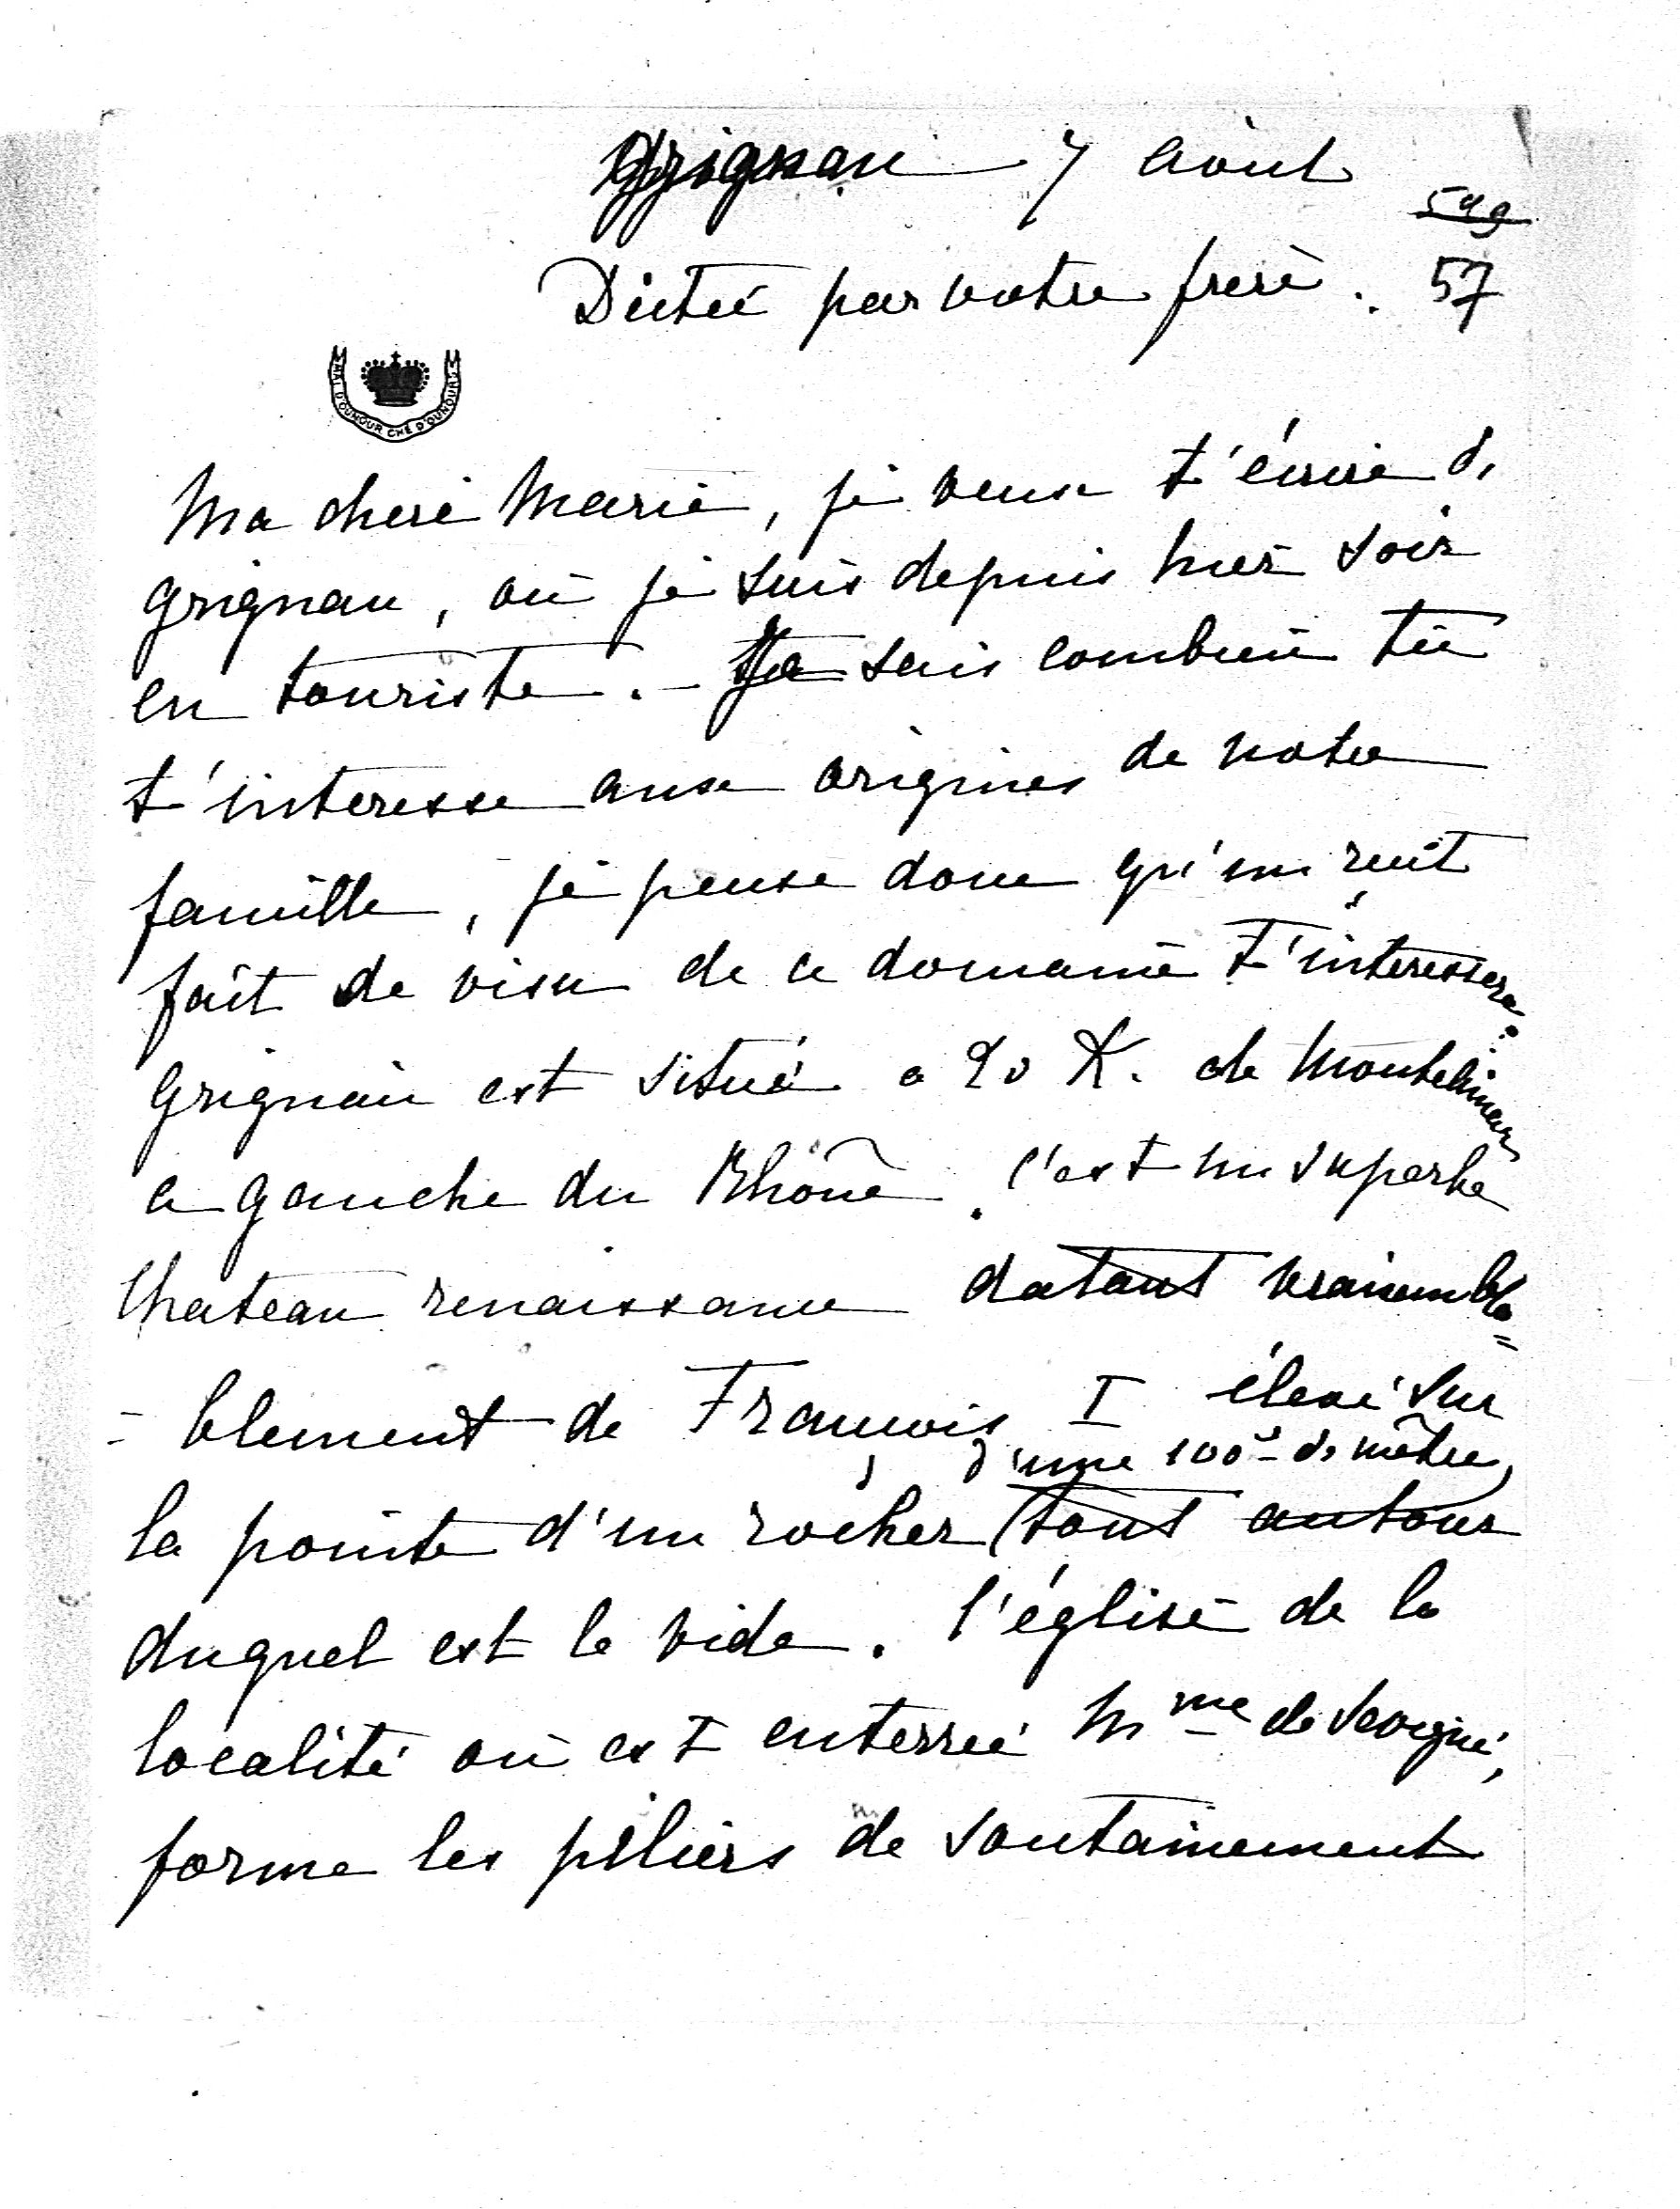 Grignan 7 août
599
Dictée par votre frère. 57
MAI D'OUNOUR CHE D'OUNOUR
Ma chere Marie, je veux t'écrire de
Grignan, où je suis depuis hier soir
en touriste. - Je sais combien tu
t'interesse aux origines de notre
famille, je pense donc qu'un récit
fait de visu de ce domaine t'interessera.
Grignan est situé a 20 K. de Montelimar
a gauche du Rhône. C'est un superbe
Chateau renaissance datant vraisembla=
= blement de François I élevé sur
d'une 100e de mètre,
la pointe d'un rocher (tout autour
duquel est le vide. l'église de la
localité où est enterrée Mme de Sevigné,
forme les piliers de soutainement